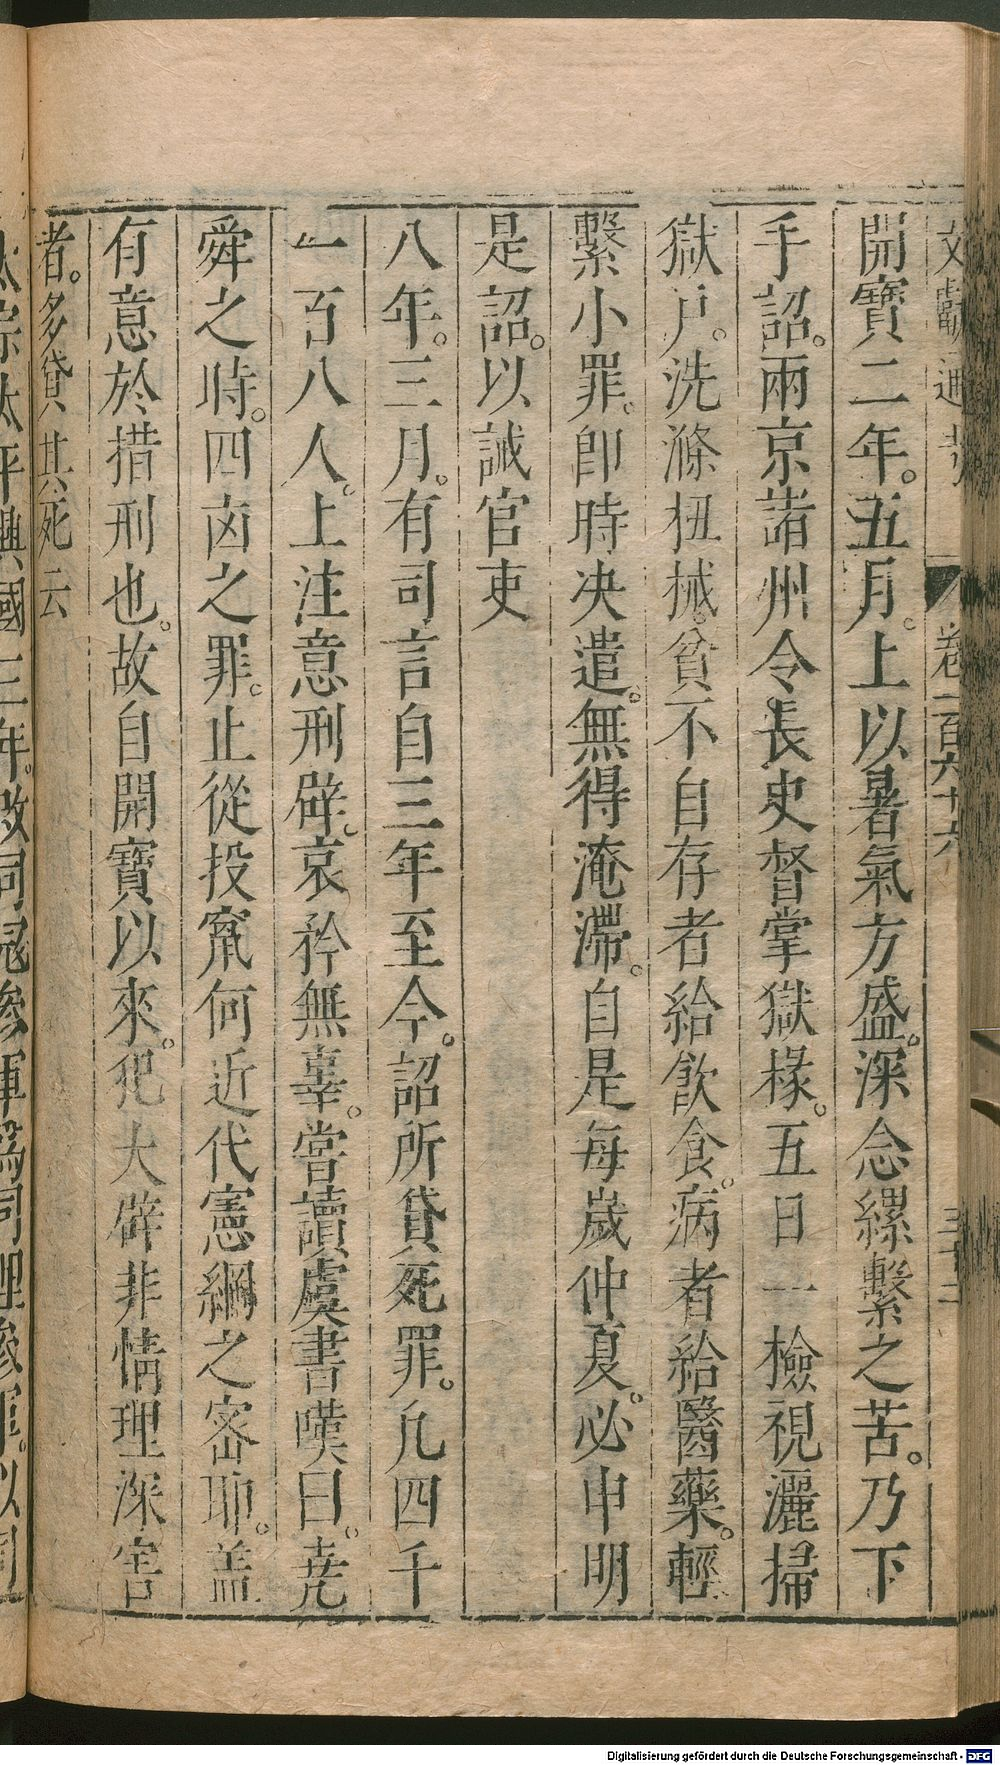 文獻通考 卷一百六十六 三十二
開寶二年。五月。上以暑氣方盛。深念縲繫之苦。乃下
手詔。兩京諸州令長吏督掌獄掾。五日一檢視灑掃
獄戸。洗滌杻械。貧不自存者給飲食。病者給醫藥。輕
繫小罪。卽時決遣。無得淹滯。自是每歲仲夏。必申明
是詔。以誡官吏
八年。三月。有司言自三年至今。詔所貸死罪。凡四千
一百八人。上注意刑辟。哀矜無辜。嘗讀虞書嘆曰。尭
舜之時。四凶之罪。止從投竄何近代憲網之宻耶。盖
有意於措刑也。故自開寶以來。犯大辟非情理深害
者。多貸其死云
太宗太平興國三年。改司冦參軍爲司理參軍。以司
Digitalisierung gefördert durch die Deutsche Forschungsgemeinschaft - DFG